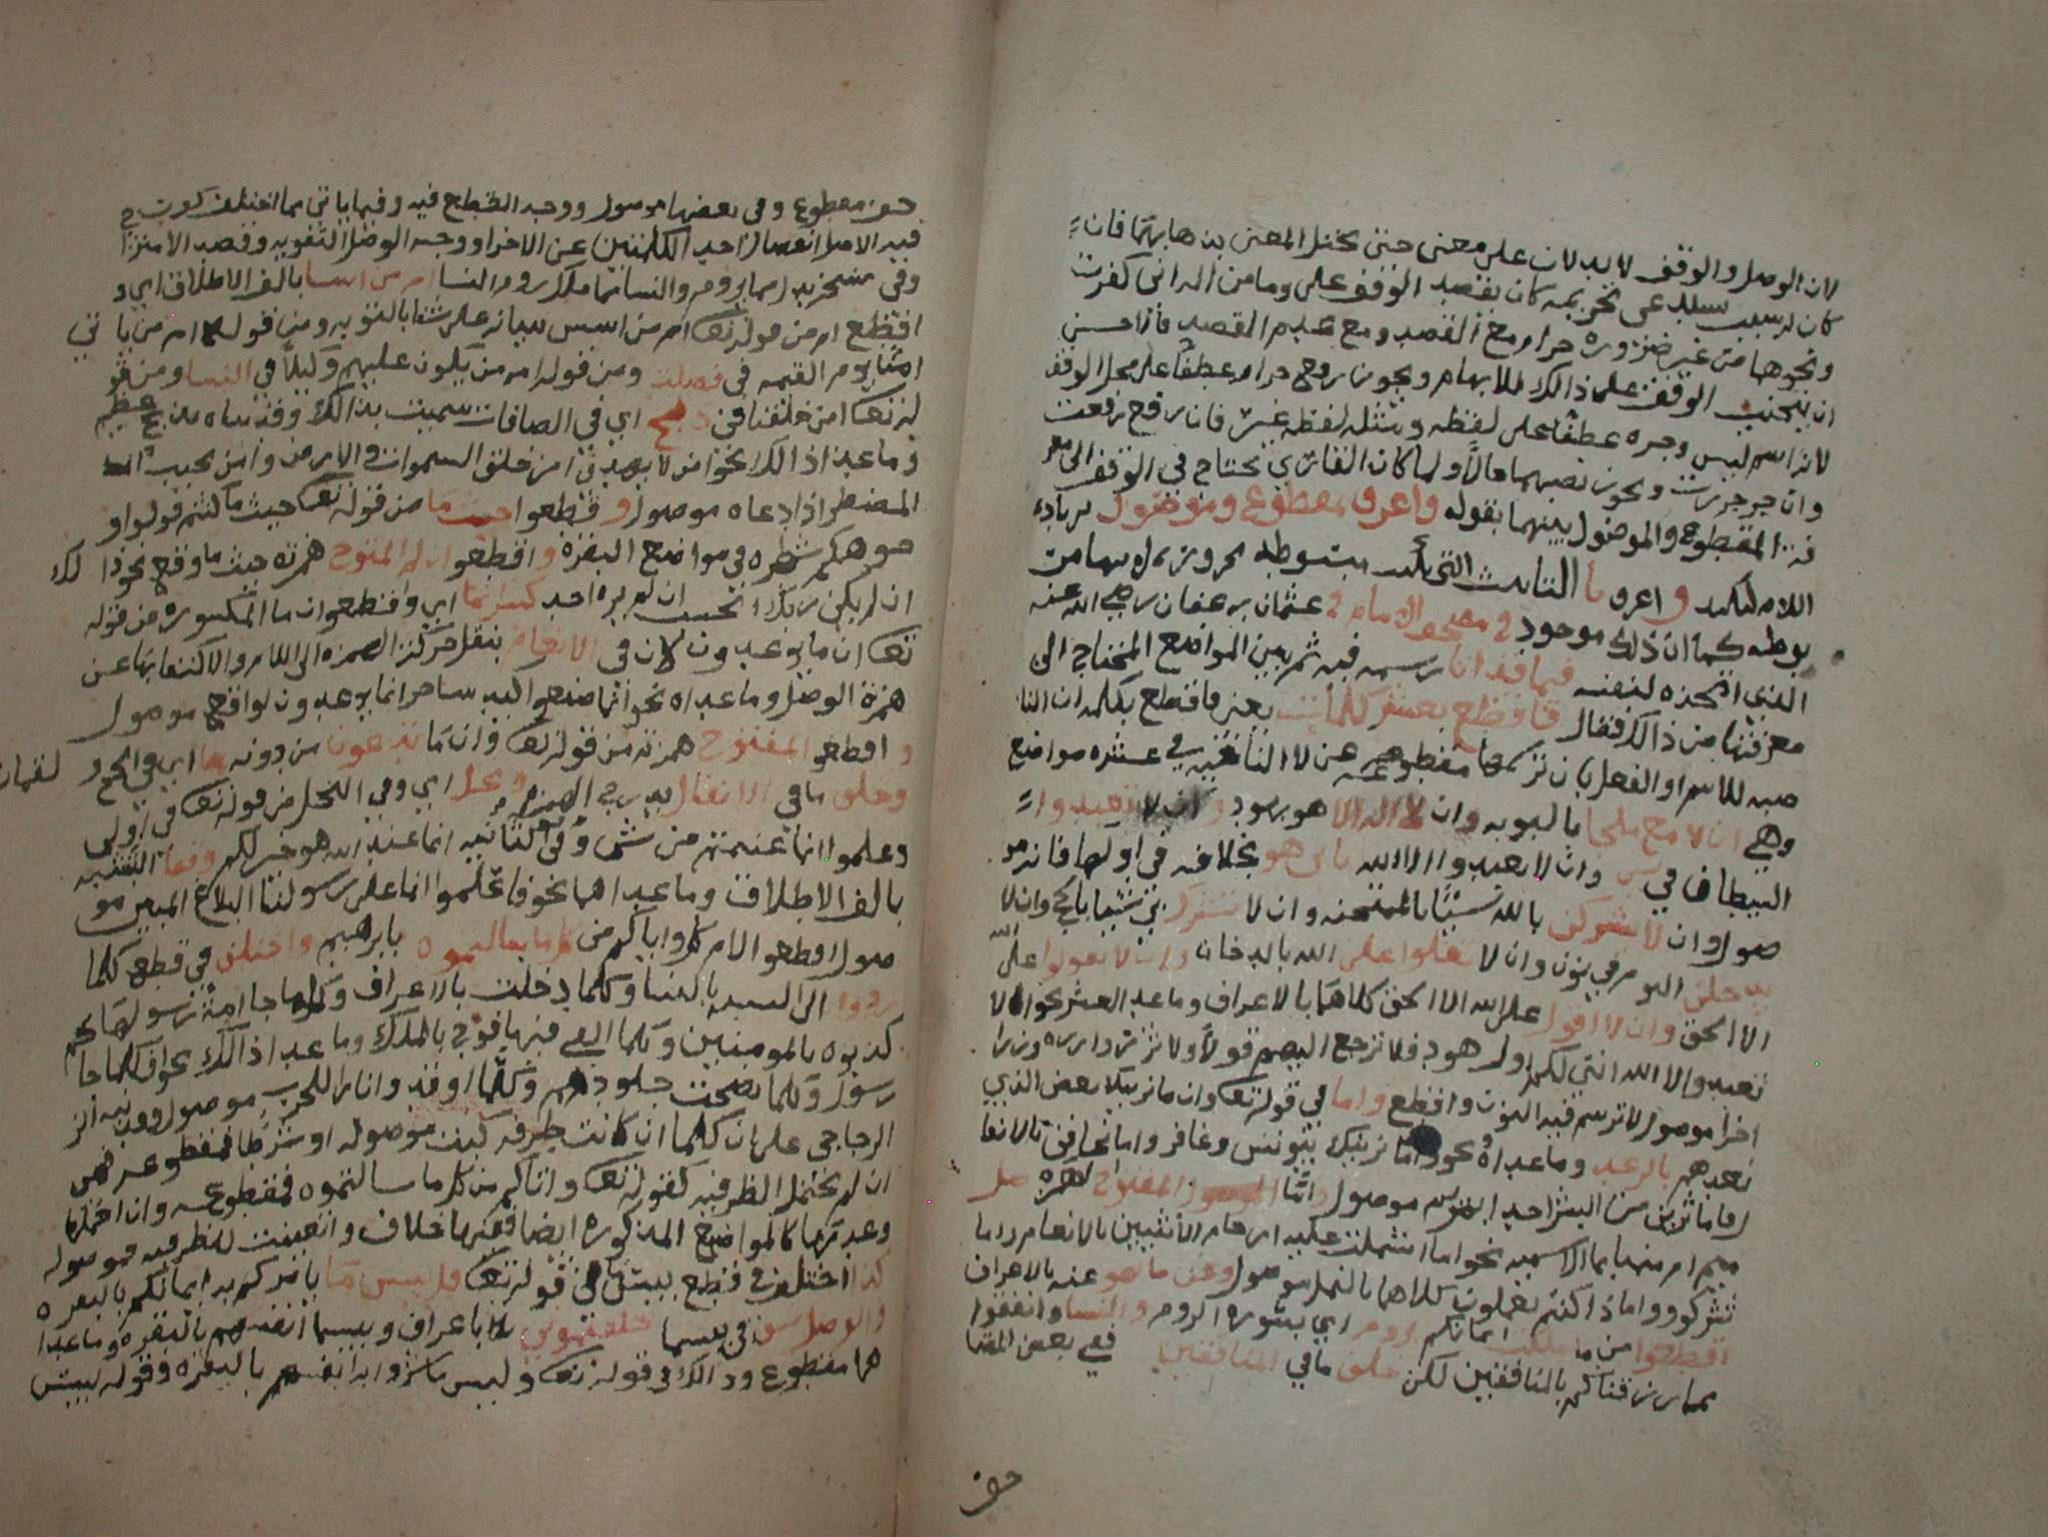 لان الوصل والوقف لا يدلان على معنى حتى يختل المعنى بذهابهما فان
كان لسبب يستدعى تحريمه كان يقصد الوقف على وما من اله انى كفرت
ونحوهما من غير ضرورة حرام مع القصد ومع عدم القصد فالاحسن
ان يتجنب الوقف على ذالك للابهام ويجوز رفع حرام عطفا على محل الوقف
لانه اسم ليس وجره عطفا على لفظه ومثله لفظه غير فان رفع رفعت
وان جر جررت ويجوز نصبهما حالا ولما كان القارى يحتاج في الوقف الى معر
فة المقطوع والموصول بينهما بقوله واعرف لمقطوع وموصول بزيادة
اللام لتاكيد واعرف تا التانيث التي تكتب مبسوطة مجرورة لا بها مر
بوطة كما ان ذلك موجود في مصحف الامام في عثمان بن عفان رضي الله عنه
الذي اتخذه لنفسه فيما قد اتا رسمه فيه ثم بين المواضع المحتاج الى
معرفتها من ذالك فقال فاقطع بعشر كلمات يعنى فاقطع بكلمة ان النا
صبة للاسم او الفعل بان تركها مقطوعة عن لا النافية في عشرة مواضع
وهي ان لا مع ملجا بالتوبة وان لا اله الا هو بهود وان لا تعبدوا
الشيطان في يس وان لا تعبدوا الا الله ثاني هود بخلافه في اولها فانه مو
صول وان لا يشركن بالله شيئا بالممتحنة وان لا تشرك بي شيئا بالحج وان لا
يدخلن اليوم في نون وان لا تعلوا على الله بالدخان وان لا يقولوا على الله
الا الحق وان لا اقول على الله الا الحق كلاهما بالاعراف وما عدا العشر نحو الا
تعبدوا الا الله انني لكم اول هود فلا ترجع اليهم قولا ولا تزر وازرة وزر ا
خرا موصول لا ترسم فيه النون واقطع واما في قوله تعا وان ما نرينك بعض الذي
نعدهم بالرعد وما عداه نحو واما نرينك بيونس وغافر واما تخافن بالانفا
ل فاما ترين من البشر احدا بمريم موصول واما الموصول المفتوح همزه صل
ميم ام منها بما الاسمية نحو اما اشتملت عليه ارحام الانثيين بالانعام واما
تشركون واما ذا كنتم تعملون كلاهما بالنمل موصول وعن ما نهو عنه بالاعراف
اقطعوا من ما ملكت ايمانكم روم اي بسورة الروم والنسا وانفقوا
مما رزقناكم بالمنافقين لكن خلف ما في المنافقين ففي بعض المصا
حف
حف مقطوع وفي بعضها موصول ووجه القطع فيه وفيما ياتي مما اختلف كون
فيه الاصل انفصال احد الكلمتين عن الاخر ووجه الوصل التقوية وقصد الامتزا
وفي نسخة بدل من ما بروم والنسا ما ملك روم النسا ام من اسسا بالف الاطلاق اي و
اقطع ام من قوله تعا ام من اسس بنيانه على شفا بالتوبة ومن قوله ام من ياتي
امنا يوم القيمة في فصلت ومن قوله ام من يكون عليهم وكيلا في النسا ومن قو
له تعا ام من خلقنا في ذبح اي في الصافات سميت بذالك وفديناه بذبح عظيم
وما عدا ذالك نحو امن لا يهدي امن خلق السموات والارض وامن يجيب
المضطر اذا دعاه موصول وقطعوا حيث ما من قوله تعا حيث ما كنتم فولوا و
جوهكم شطره في مواضع البقرة واقطعوا ان لم المفتوح همزته حيث ما وقع نحو ذالك
ان لم يكن ربك ايحسب ان لم يره احد كسر انما اي واقطعوا ان ما المكسورة من قوله
تعا ان ما توعدون لات في الانعام بنقل حركة الهمزة الى اللام والاكتفا بها عن
همزة الوصل وما عداه نحو انما صنعوا كيد ساحر انما توعدون لواقع موصول
واقطعوا المفتوح همزته من قوله تعا وان ما تدعون من دونه معا اي في الحج و لقمان
وخلف ما في الانفال بدرج الهمزة ونحل اي وفي النحل من قوله تعا في اولى
وعلموا انما غنمتم من شي وفي الثانية انما عند الله هو خير لكم وقعا البتنيه
بالف الاطلاق وما عداهما نحو فاعلموا انما على رسولنا البلاغ المبين مو
صول واقطعوا لام كل واتاكم من كل ما سالتموه بابرهيم واختلف في قطع كلما
ردوا الى الفتنة بالنسا وكلما دخلت بالاعراف وكلما جا امة رسولها
كذبوه بالمومنين وكلما القي فيها فوج بالملك وما عدا ذالك نحو افكلما جا
رسول وكلما نضجت جلودهم وكلما اوقدوا نارا للحرب موصول ونبه
الزجاجي على ان كلما ان كانت ظرفية كتبت موصولة او شرطا فمقطوعة فهى
ان لم تحتمل الظرفية كقوله تعا واتاكم من كل ما سالتموه فمقطوعة وان احتملتها
وعدمها كالمواضع المذكورة ايضا ففيها خلاف وان تعينت للظرفية فموصولة
كذا اختلف في قطع بيسما في قوله تعا قل بيس ما يامركم به ايمانكم بالبقرة
والوصل صف في بيسما خلفتموني بالاعراف وبيسما اشتروا به انفسهم بالبقرة وما عدا
هما مقطوع وذالك في قوله تعا ولبيس ما شروا به انفسهم بالبقرة وقوله لبيس